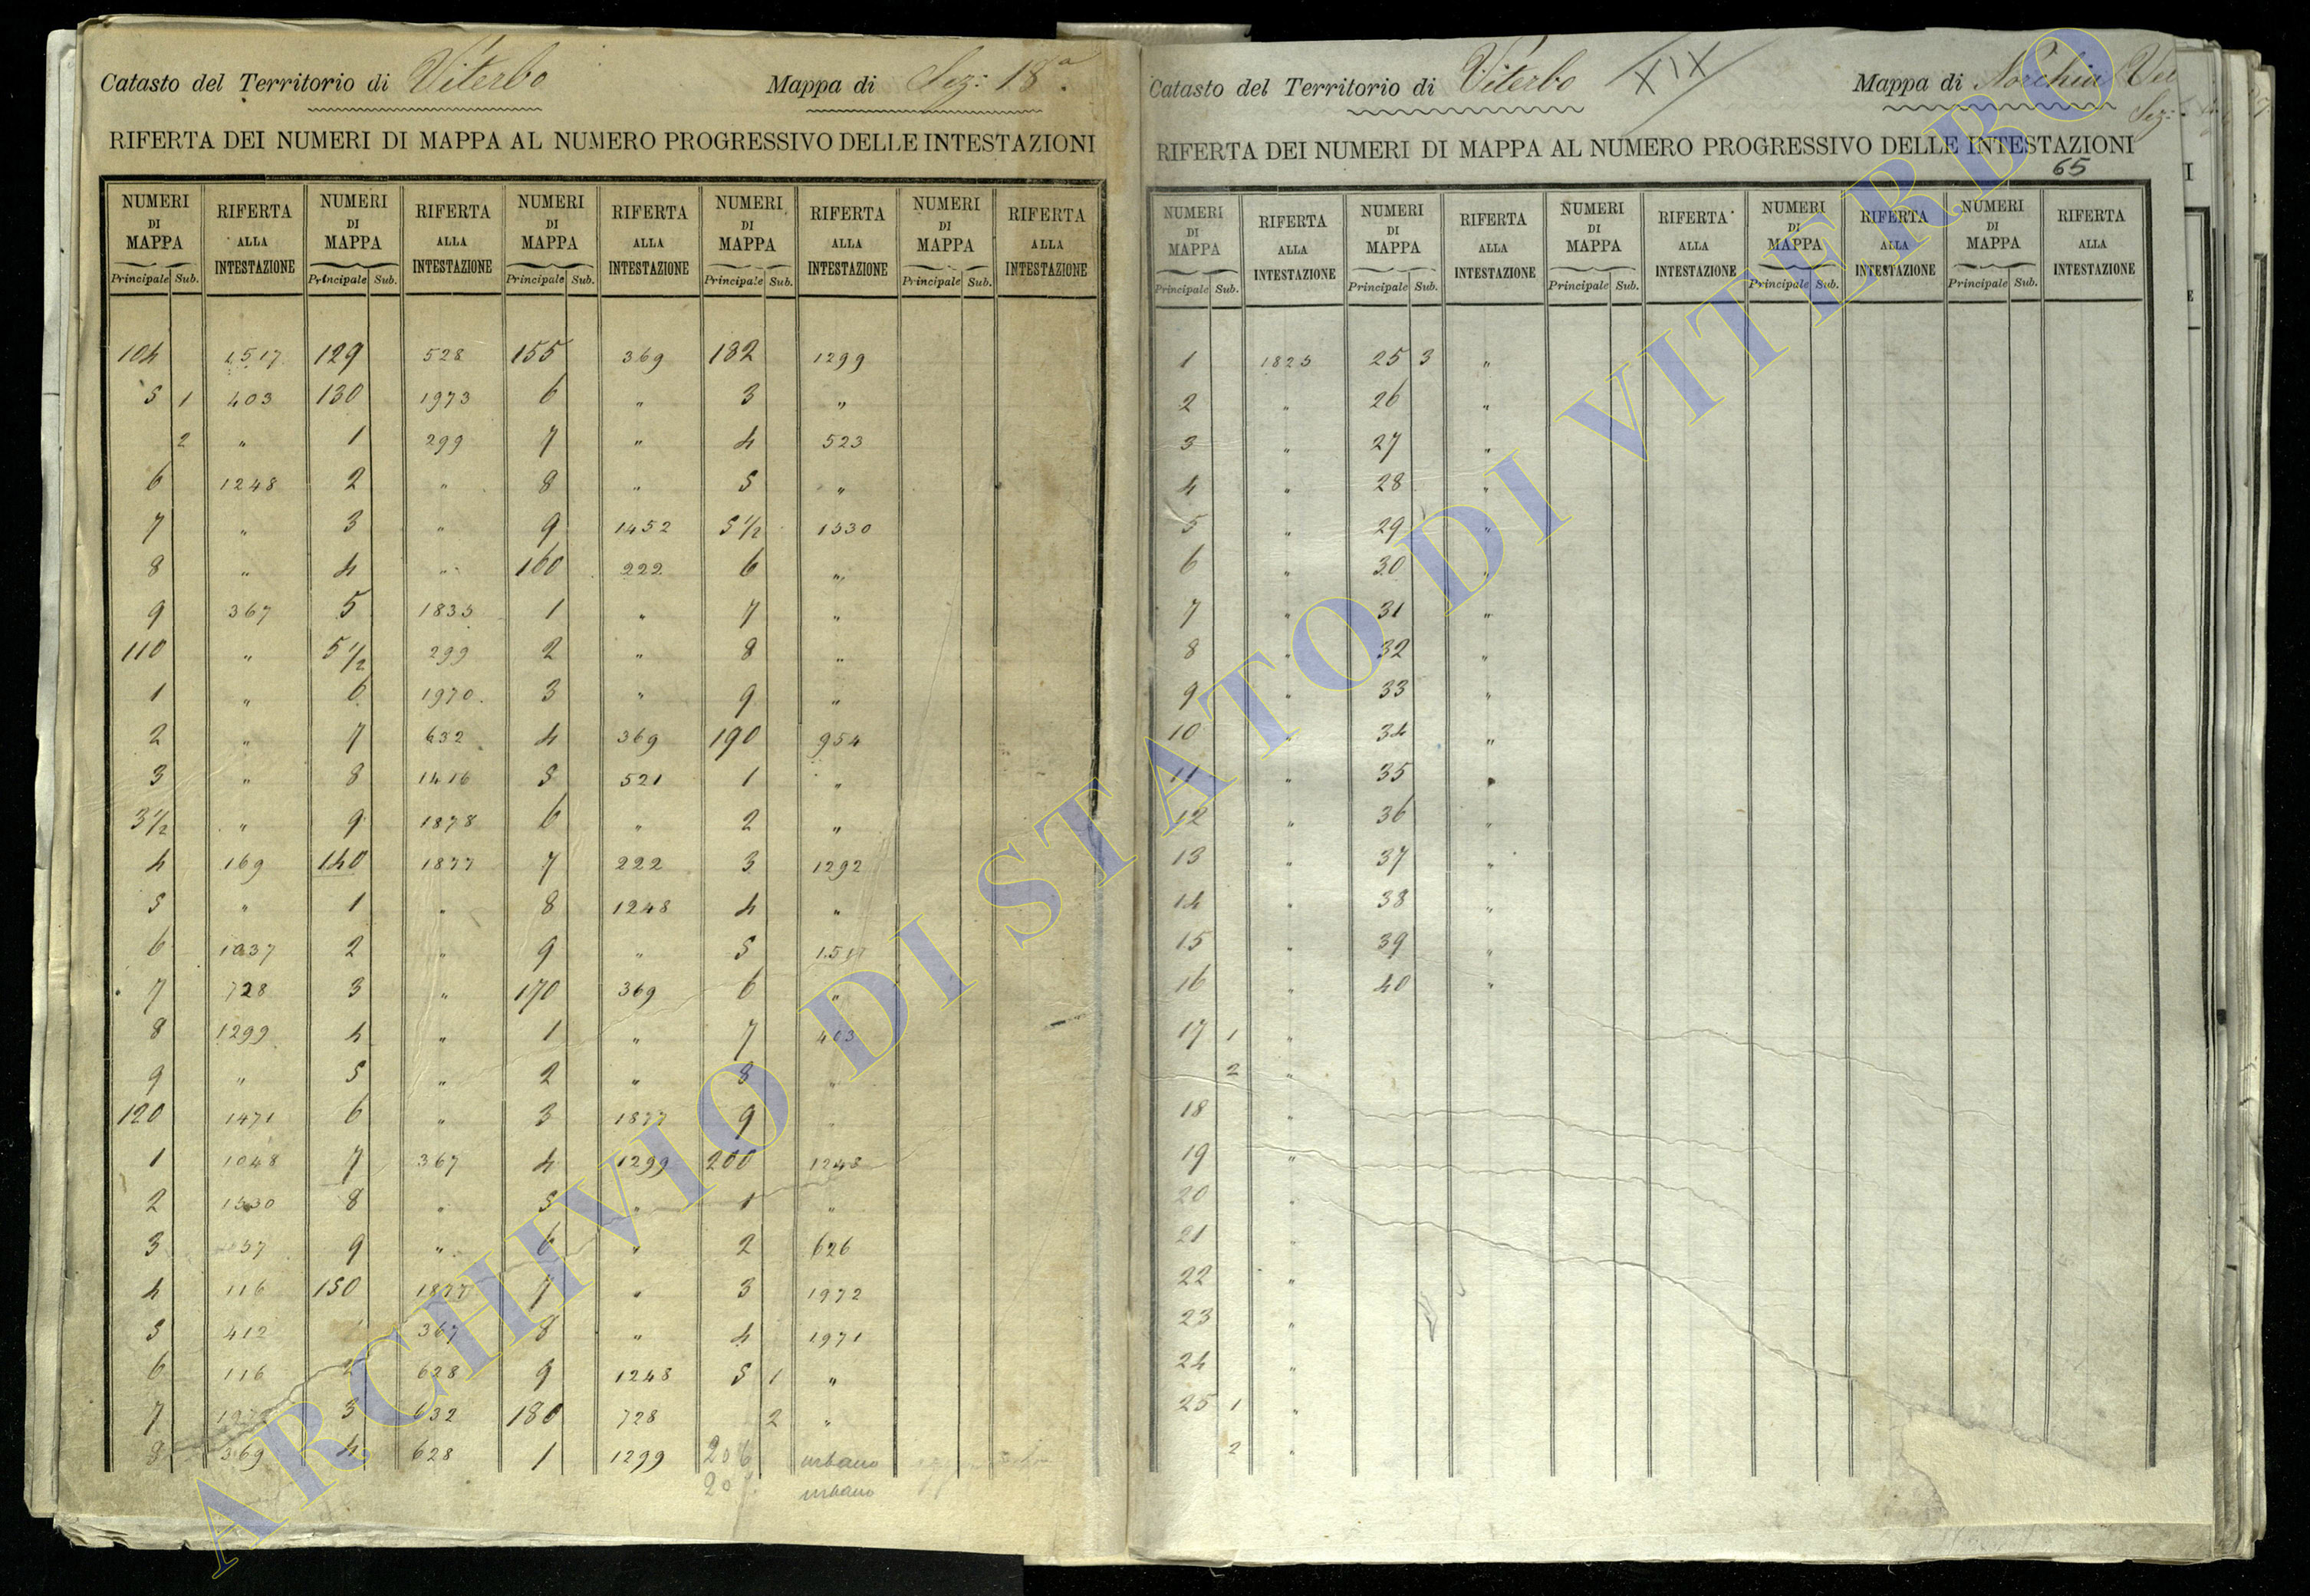 Catasto del Territorio di Viterbo Mappa di Sez: 18a
RIFERTA DEI NUMERI DI MAPPA AL NUMERO PROGRESSIVO DELLE INTESTAZIONI
NUMERI DI MAPPA RIFERTA ALLA INTESTAZIONE NUMERI DI MAPPA RIFERTA ALLA INTESTAZIONE NUMERI DI MAPPA RIFERTA ALLA INTESTAZIONE NUMERI DI MAPPA RIFERTA ALLA INTESTAZIONE NUMERI DI MAPPA RIFERTA ALLA INTESTAZIONE
Principale Sub. Principale Sub. Principale Sub. Principale Sub. Principale Sub.
104 1517 129 528 155 369 182 1299
5 1 403 130 1973 6 " 3 "
2 " 1 299 7 " 4 523
6 1248 2 " 8 " 5 "
7 " 3 " 9 1452 5 1/2 1530
8 " 4 " 160 222 6 "
9 367 5 1835 1 " 7 "
110 " 5 1/2 299 2 " 8 "
1 " 6 1970 3 " 9 "
2 " 7 632 4 369 190 954
3 " 8 1416 5 521 1 "
3 1/2 " 9 1878 6 " 2 "
4 169 140 1877 7 222 3 1292
5 " 1 " 8 1248 4 "
6 1037 2 " 9 " 5
7 728 3 " 170 369 6 "
8 1299 4 " 1 " 7 403
9 " 5 " 2 " 8 "
120 1471 6 " 3 1877 9 "
1 1048 7 367 4 1299 200 1248
2 1530 8 " 5 " 1 "
3 9 " 6 " 2 626
4 116 150 1877 7 " 3 1972
5 412 367 8 " 4 1971
6 116 2 628 9 1248 5 1 "
7 3 632 180 728 2 "
8 369 4 628 1 1299 206 urbano
urbano
Catasto del Territorio di Viterbo XIX Mappa di Norchia
Sez:
RIFERTA DEI NUMERI DI MAPPA AL NUMERO PROGRESSIVO DELLE INTESTAZIONI
65
NUMERI DI MAPPA RIFERTA ALLA INTESTAZIONE NUMERI DI MAPPA RIFERTA ALLA INTESTAZIONE NUMERI DI MAPPA RIFERTA ALLA INTESTAZIONE NUMERI DI MAPPA RIFERTA ALLA INTESTAZIONE NUMERI DI MAPPA RIFERTA ALLA INTESTAZIONE
Principale Sub. Principale Sub. Principale Sub. Principale Sub. Principale Sub.
1 1825 25 3 "
2 " 26 "
3 " 27 "
4 " 28 "
5 " 29 "
6 " 30 "
7 " 31 "
8 " 32 "
9 " 33 "
10 " 34 "
11 " 35 "
12 " 36 "
13 " 37 "
14 " 38 "
15 " 39 "
16 " 40 "
17 1 "
2 "
18 "
19 "
20 "
21 "
22 "
23 "
24 "
25 1 "
2 "
ARCHIVIO DI STATO DI VITERBO